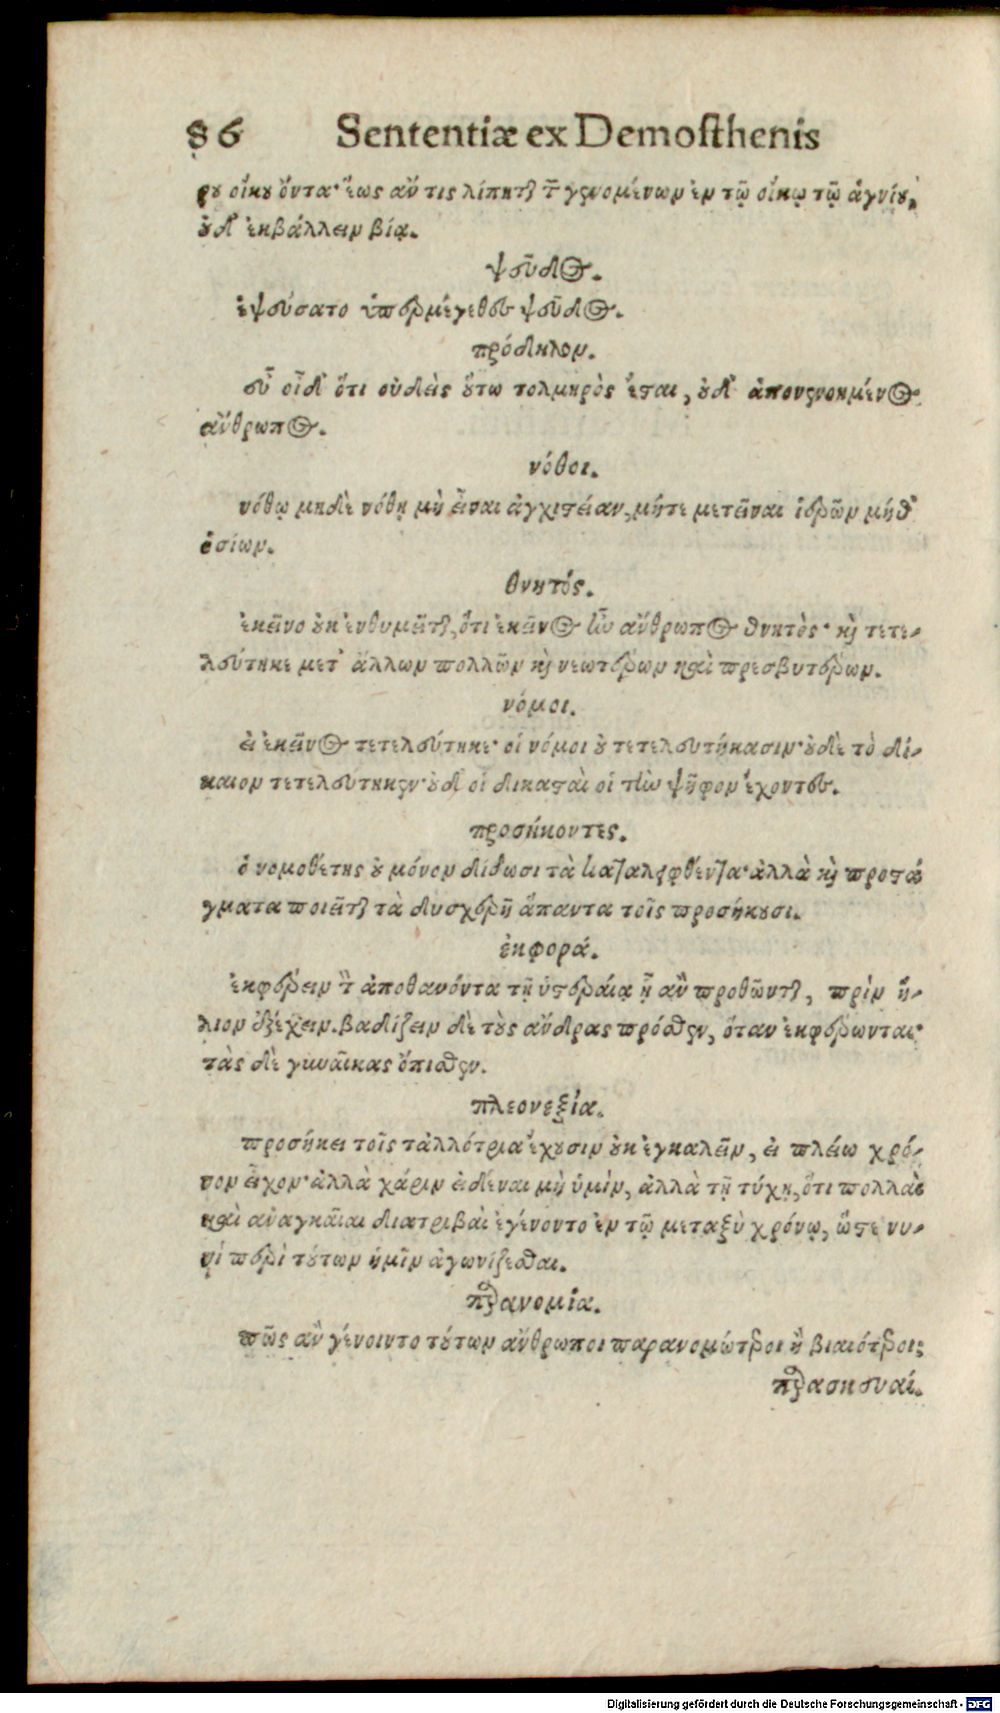 86 Sententiæ ex Demosthenis
ρου οἴκου ὄντα· ἕως ἄν τις λίπηται τῶν γενομένων ἐν τῷ οἴκῳ τῷ ἁγνίου,
οὐδ' ἐκβάλλειν βίᾳ.
ψεῦδος.
ἐψεύσατο ὑπερμέγεθες ψεῦδος.
πρόδηλον.
εὖ οἶδ' ὅτι οὐδεὶς οὕτω τολμηρὸς ἔσται, οὐδ' ἀπονενοημένος
ἄνθρωπος.
νόθοι.
νόθῳ μηδὲ νόθῃ μὴ εἶναι ἀγχιστείαν, μήτε μετεῖναι ἱερῶν μήθ'
ὁσίων.
θνητός.
ἐκεῖνο οὐκ ἐνθυμεῖται, ὅτι ἐκεῖνος ἦν ἄνθρωπος θνητὸς· καὶ τετε-
λεύτηκε μετ' ἄλλων πολλῶν καὶ νεωτέρων καὶ πρεσβυτέρων.
νόμοι.
εἰ ἐκεῖνος τετελεύτηκε· οἱ νόμοι οὐ τετελευτήκασιν· οὐδὲ τὸ δί-
καιον τετελεύτηκεν· οὐδ' οἱ δικασταὶ οἱ τὴν ψῆφον ἔχοντες.
προσήκοντες.
ὁ νομοθέτης οὐ μόνον δίδωσι τὰ καταλειφθέντα· ἀλλὰ καὶ προστά
γματα ποιεῖται τὰ δυσχερῆ ἅπαντα τοῖς προσήκουσι.
ἐκφορά.
ἐκφέρειν τὸν ἀποθανόντα τῇ ὑστεραίᾳ ᾗ ἂν προθῶνται, πρὶν ἥ-
λιον ἐξέχειν. βαδίζειν δὲ τοὺς ἄνδρας πρόσθεν, ὅταν ἐκφέρωνται·
τὰς δὲ γυναῖκας ὄπισθεν.
πλεονεξία.
προσήκει τοῖς τἀλλότρια ἔχουσιν οὐκ ἐγκαλεῖν, εἰ πλείω χρό-
νον εἶχον· ἀλλὰ χάριν εἰδέναι μὴ ὑμῖν, ἀλλὰ τῇ τύχῃ, ὅτι πολλαὶ
καὶ ἀναγκαῖαι διατριβαὶ ἐγένοντο ἐν τῷ μεταξὺ χρόνῳ, ὥστε νυ-
νὶ περὶ τούτων ἡμῖν ἀγωνίζεσθαι.
παρανομία.
πῶς ἂν γένοιντο τούτων ἄνθρωποι παρανομώτεροι ἢ βιαιότεροι;
παρασκευαί.
Digitalisierung gefördert durch die Deutsche Forschungsgemeinschaft - DFG